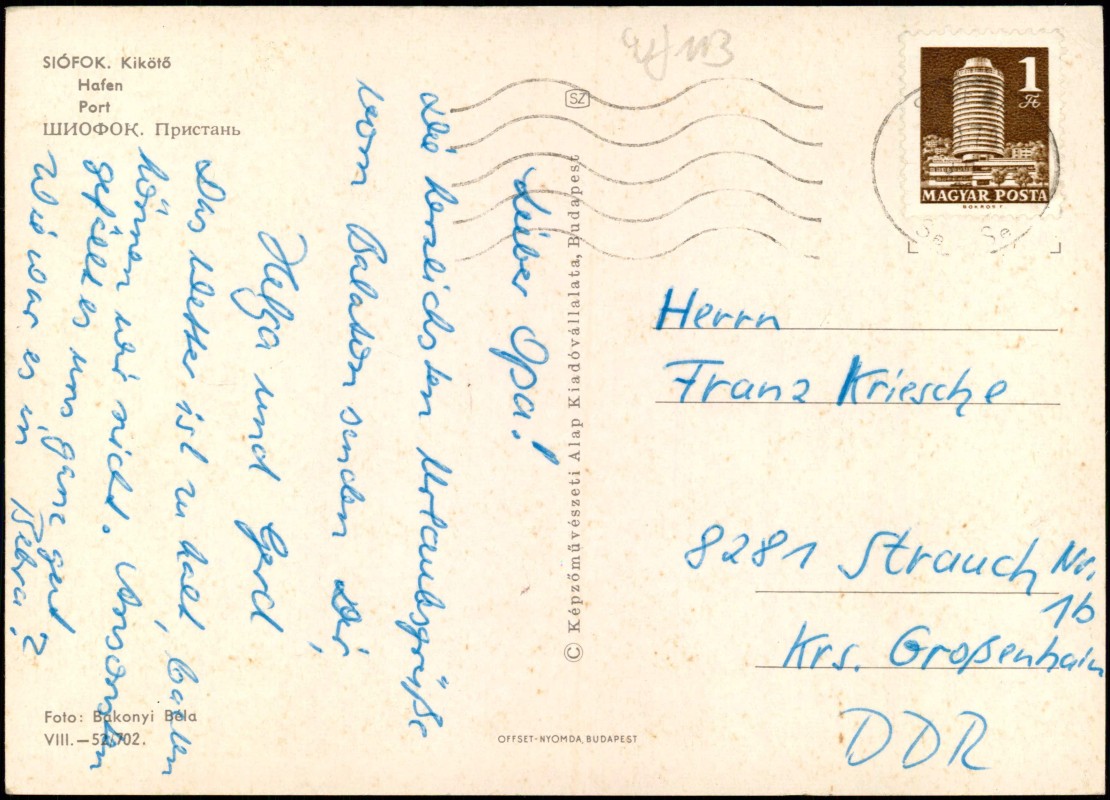 SIÓFOK. Kikötő
Hafen
Port
ШИОФОК. Пристань
SZ
1
Ft
MAGYAR POSTA
Lieber Opa!
Die herzlichsten Urlaubsgrüße
vom Balaton senden Dir,
Helga und Gerd
Das Wetter ist zu kalt, baden
können wir nicht. Ansonsten
gefällt es uns ganz gut
Wie war es in Bebra?
Herrn
Franz Kriesche
8281 Strauch Nr.
1b
Krs. Großenhain
DDR
© Képzőművészeti Alap Kiadóvállalata, Budapest
Foto: Bakonyi Béla
VIII.—52/702.
OFFSET-NYOMDA, BUDAPEST